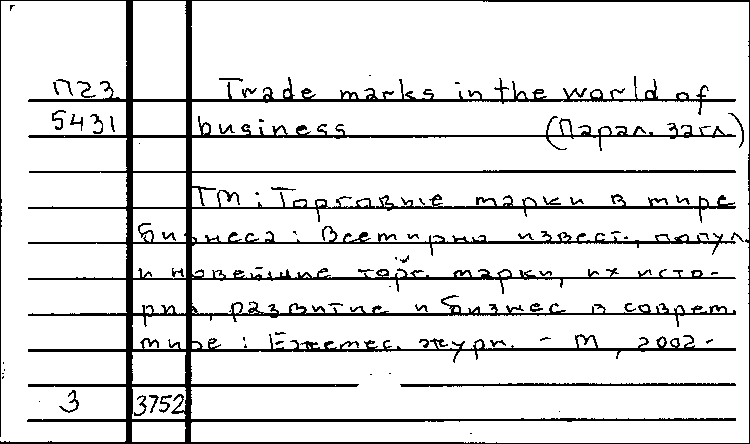 П23 Trade marks in the world of
5431 business (Парал. загл.)
ТМ: Торговые марки в мире
бизнеса: Всемирно извест., попул.
и новейшие торг. марки, их исто-
рия, развитие и бизнес в соврем.
мире: Ежемес. журн. - М, 2002-
3 3752